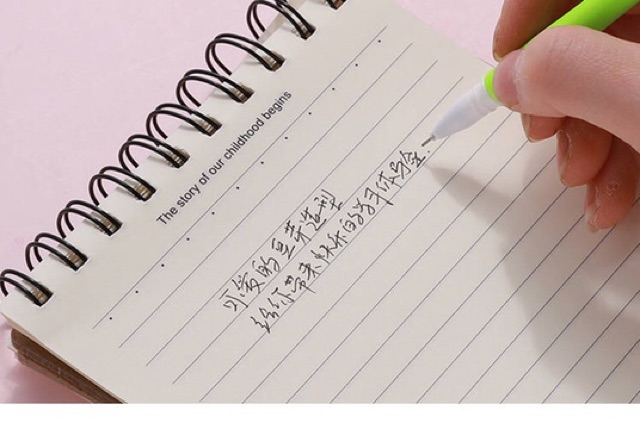 The story of our childhood begins
可爱的豆芽造型
给你带来快乐的书写体验